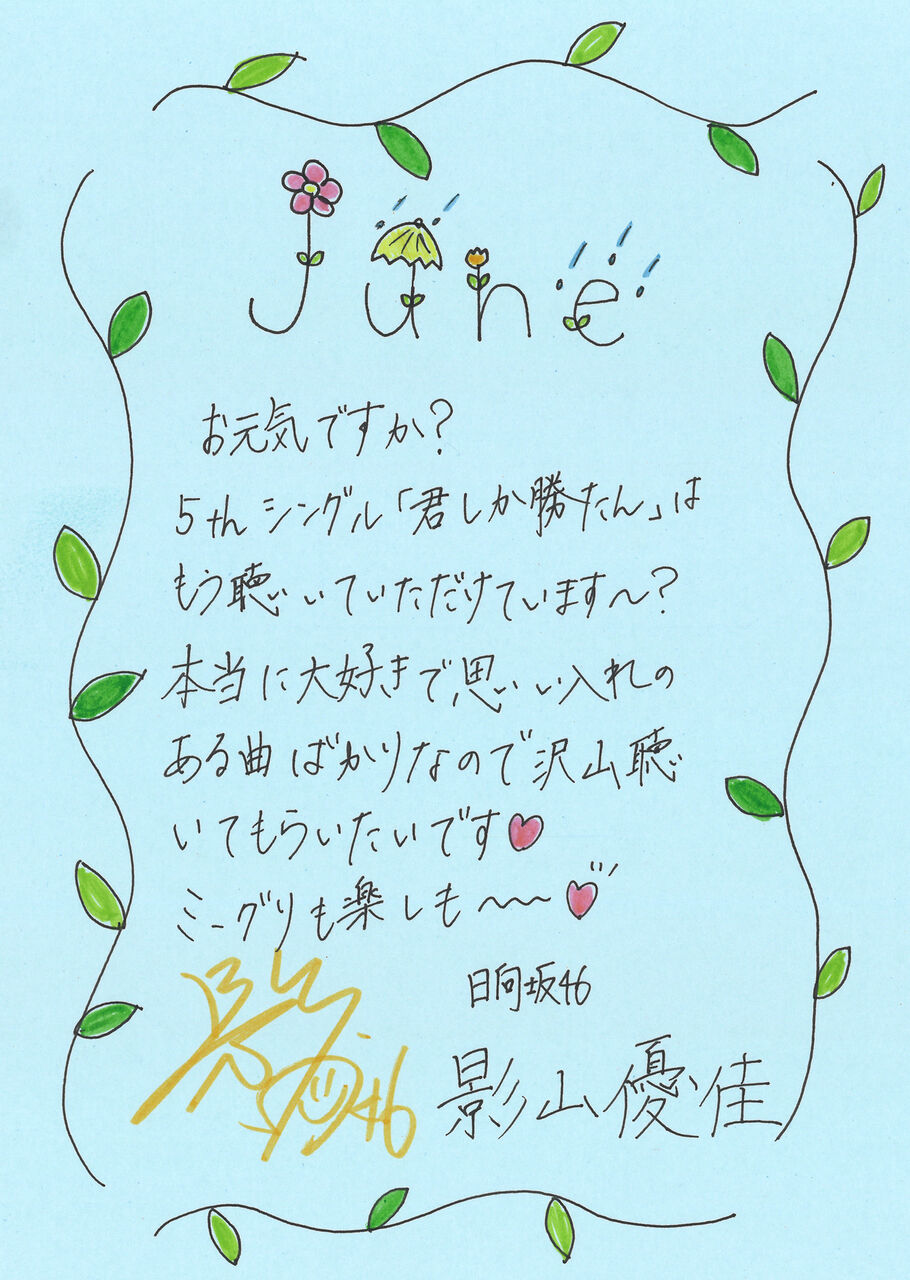 June
お元気ですか?
5thシングル「君しか勝たん」は
もう聴いていただけています〜?
本当に大好きで思い入れの
ある曲ばかりなので沢山聴
いてもらいたいです
ミーグリも楽しも〜〜
日向坂46
46
影山優佳